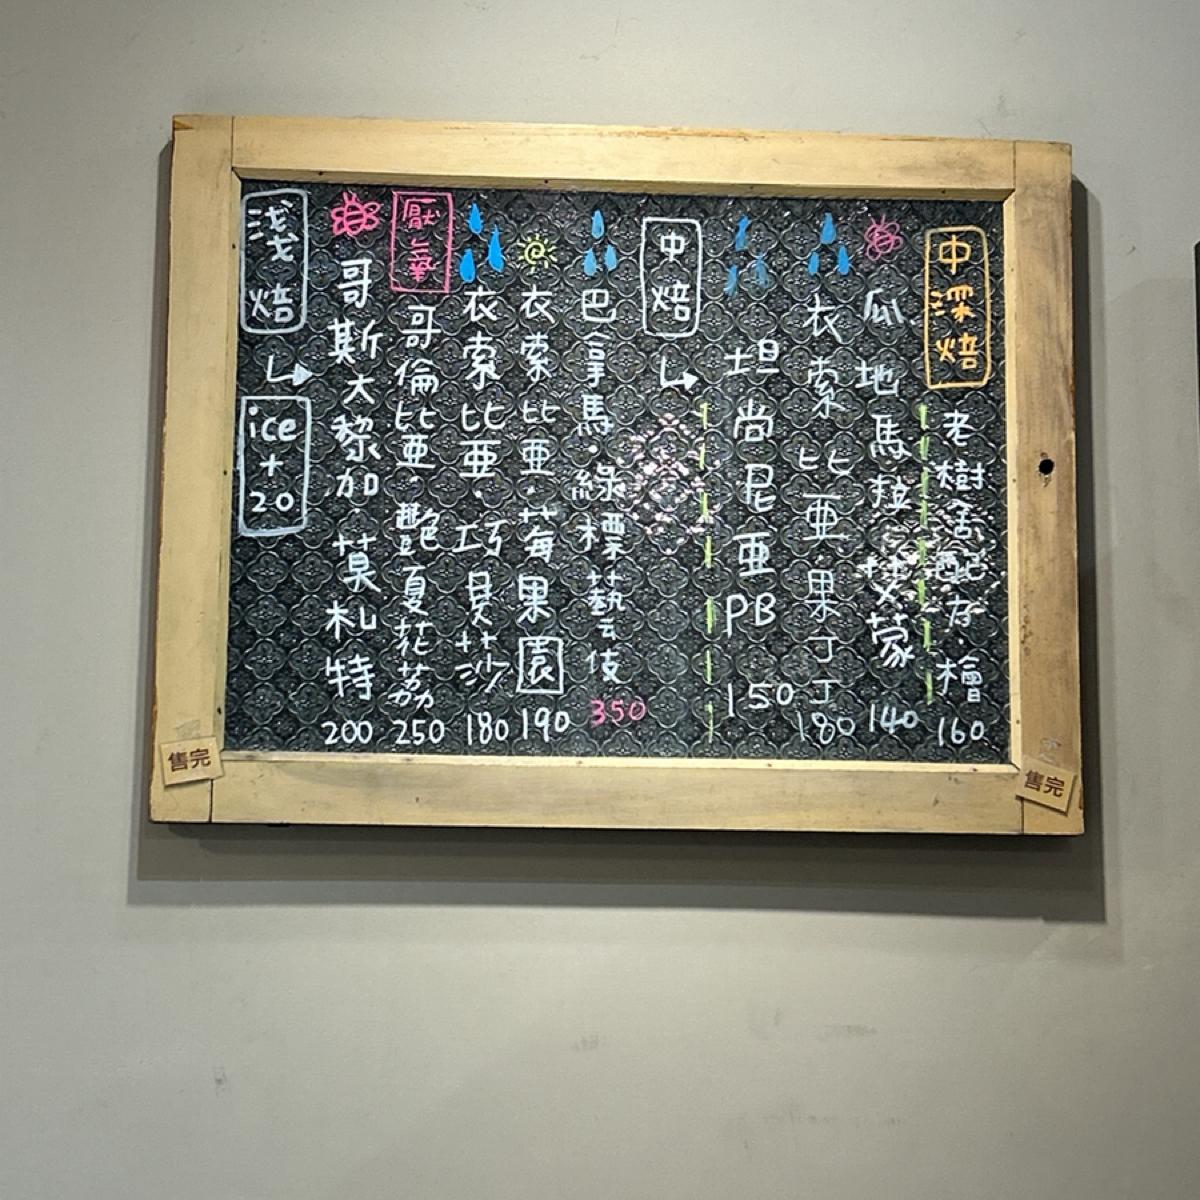 浅焙
ice
+
20
哥斯大黎加·莫札特
200
厭氧
哥倫比亞·艷夏花荔
250
衣索比亞·巧貝莎
180
衣索比亞·莓果園
190
巴拿馬·綠標藝伎
350
中焙
坦尚尼亞PB
150
衣索比亞果丁丁
180
瓜地馬拉艾蒙
140
中深焙
老樹舍配方·檜
160
售完
售完